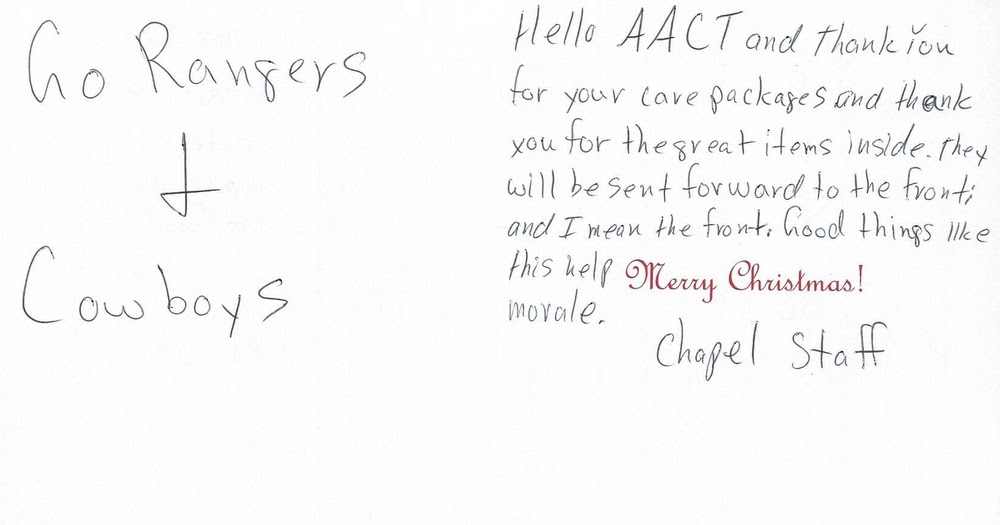 Go Rangers
+
Cowboys
Hello AACT and thank you
for your care packages and thank
you for the great items inside. They
will be sent forward to the front;
and I mean the front. Good things like
this help Merry Christmas!
morale.
Chapel Staff